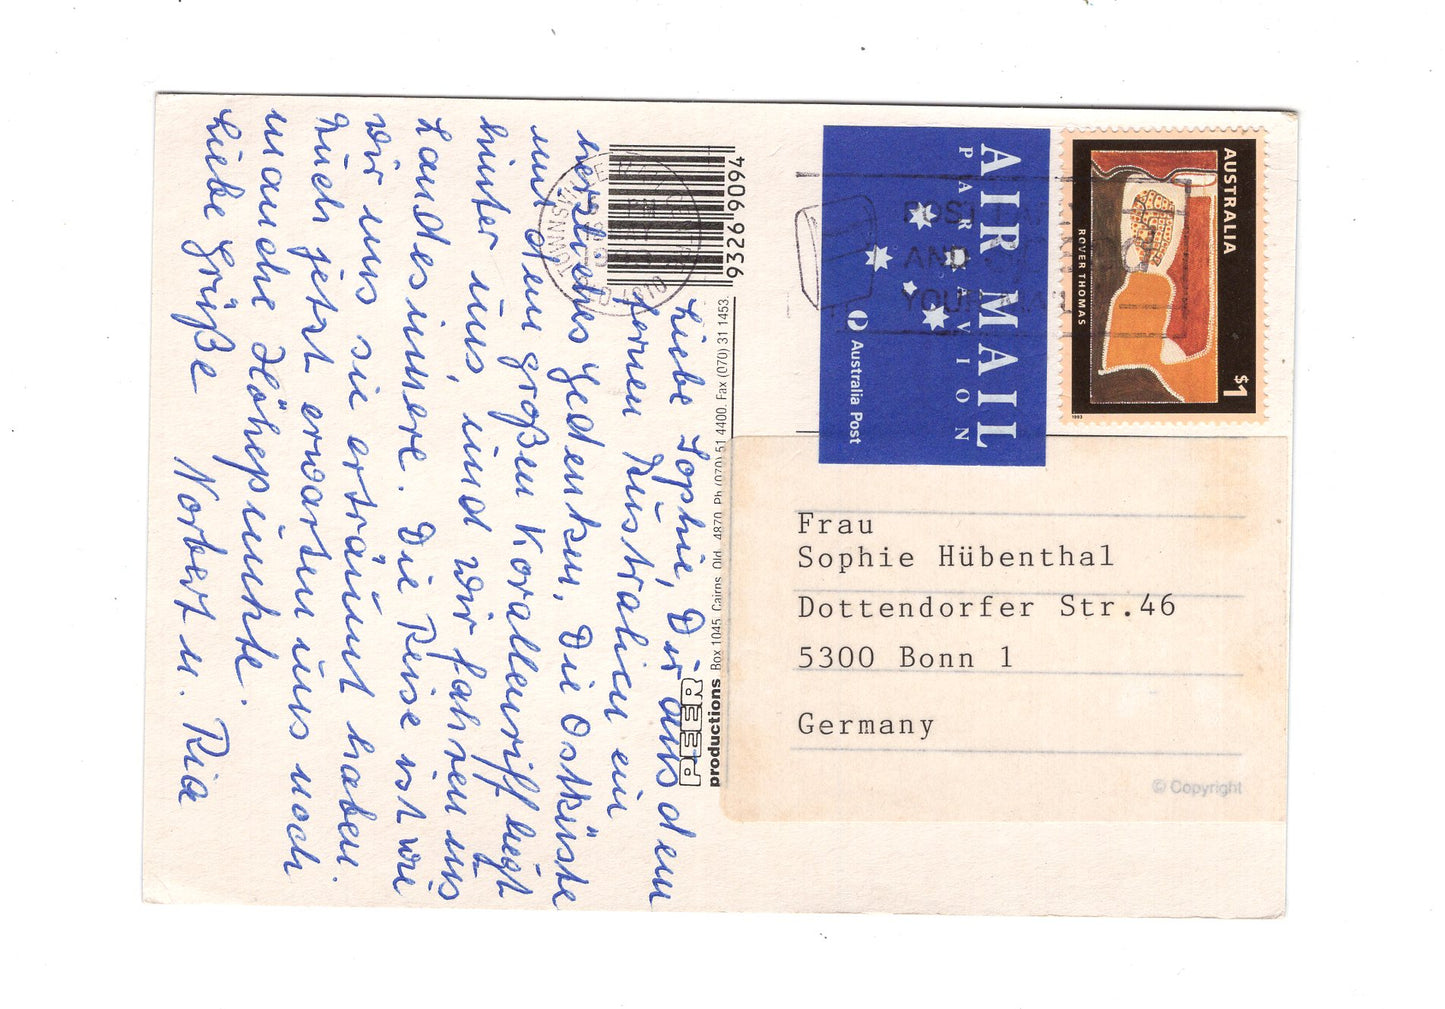 Liebe Sophie, Dir aus dem
fernen Australien ein
herzliches Gedenken. Die Ostküste
mit dem großen Korallenriff liegt
hinter uns, und wir fahren ins
Landesinnere. Die Reise ist wie
wir uns sie erträumt haben.
Auch jetzt erwarten uns noch
manche Höhepunkte.
Liebe Grüße Norbert u. Ria
93266 9094
PEER
productions Box 1045, Cairns, Qld. 4870. Ph (070) 51 4400. Fax (070) 31 1453.
AIR MAIL
PAR AVION
Australia Post
AUSTRALIA
ROVER THOMAS
$1
1993
POST
AND
YOUR MAIL
TOWNSVILLE
Frau
Sophie Hübenthal
Dottendorfer Str.46
5300 Bonn 1
Germany
© Copyright